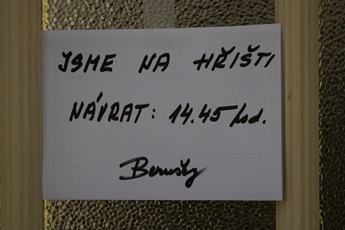 JSME NA HŘIŠTI
NÁVRAT: 14.45 hod.
Berušky